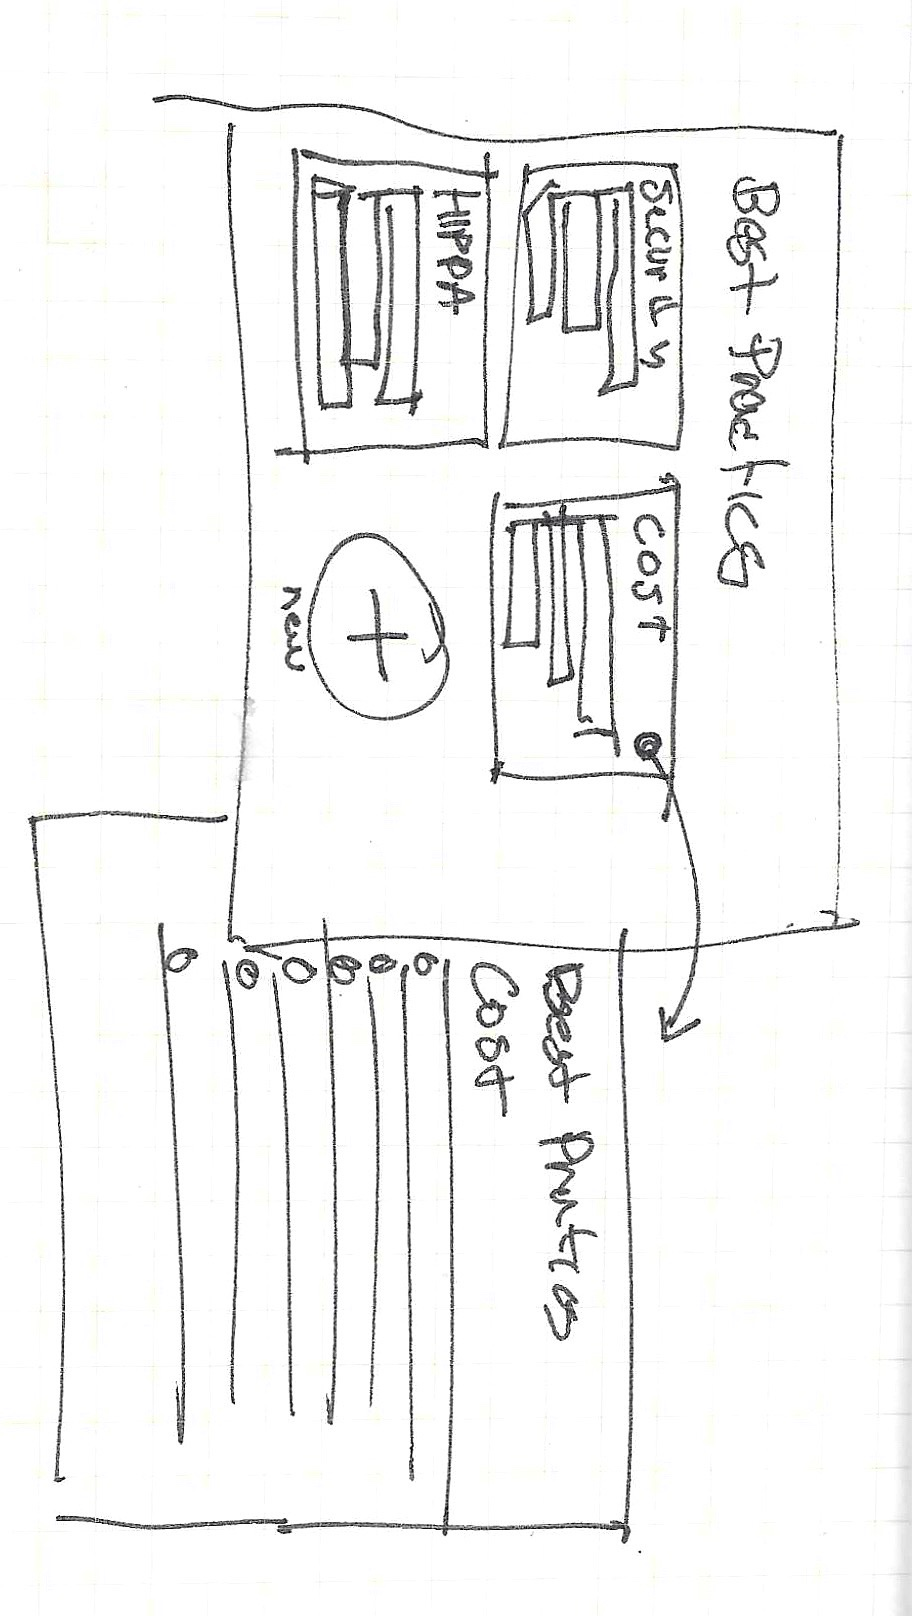 Best Practices
Security
Cost
HIPPA
+
new
Best Practices
Cost